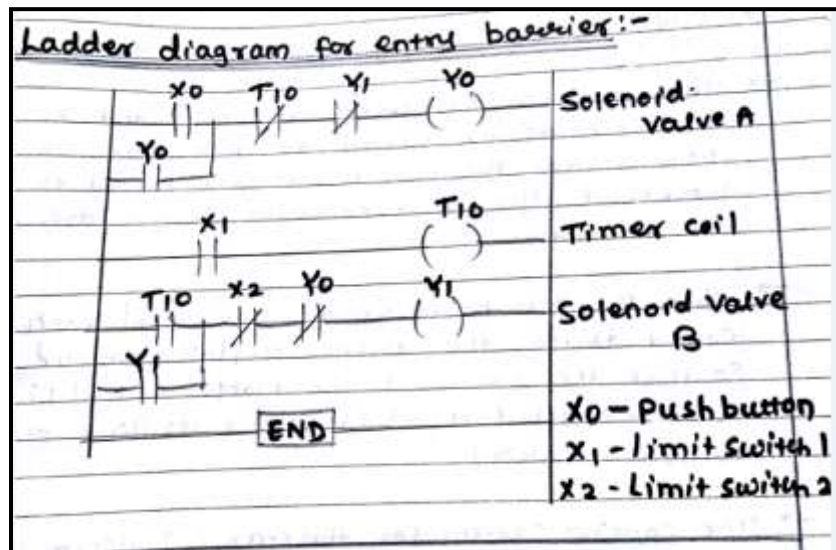 Ladder diagram for entry barrier:-
X0 T10 Y1 Y0
Solenoid
valve A
Y0
X1 T10
Timer coil
T10 X2 Y0 Y1
Solenord valve
B
Y1
END
X0 - Push button
X1 - limit switch 1
X2 - Limit switch 2